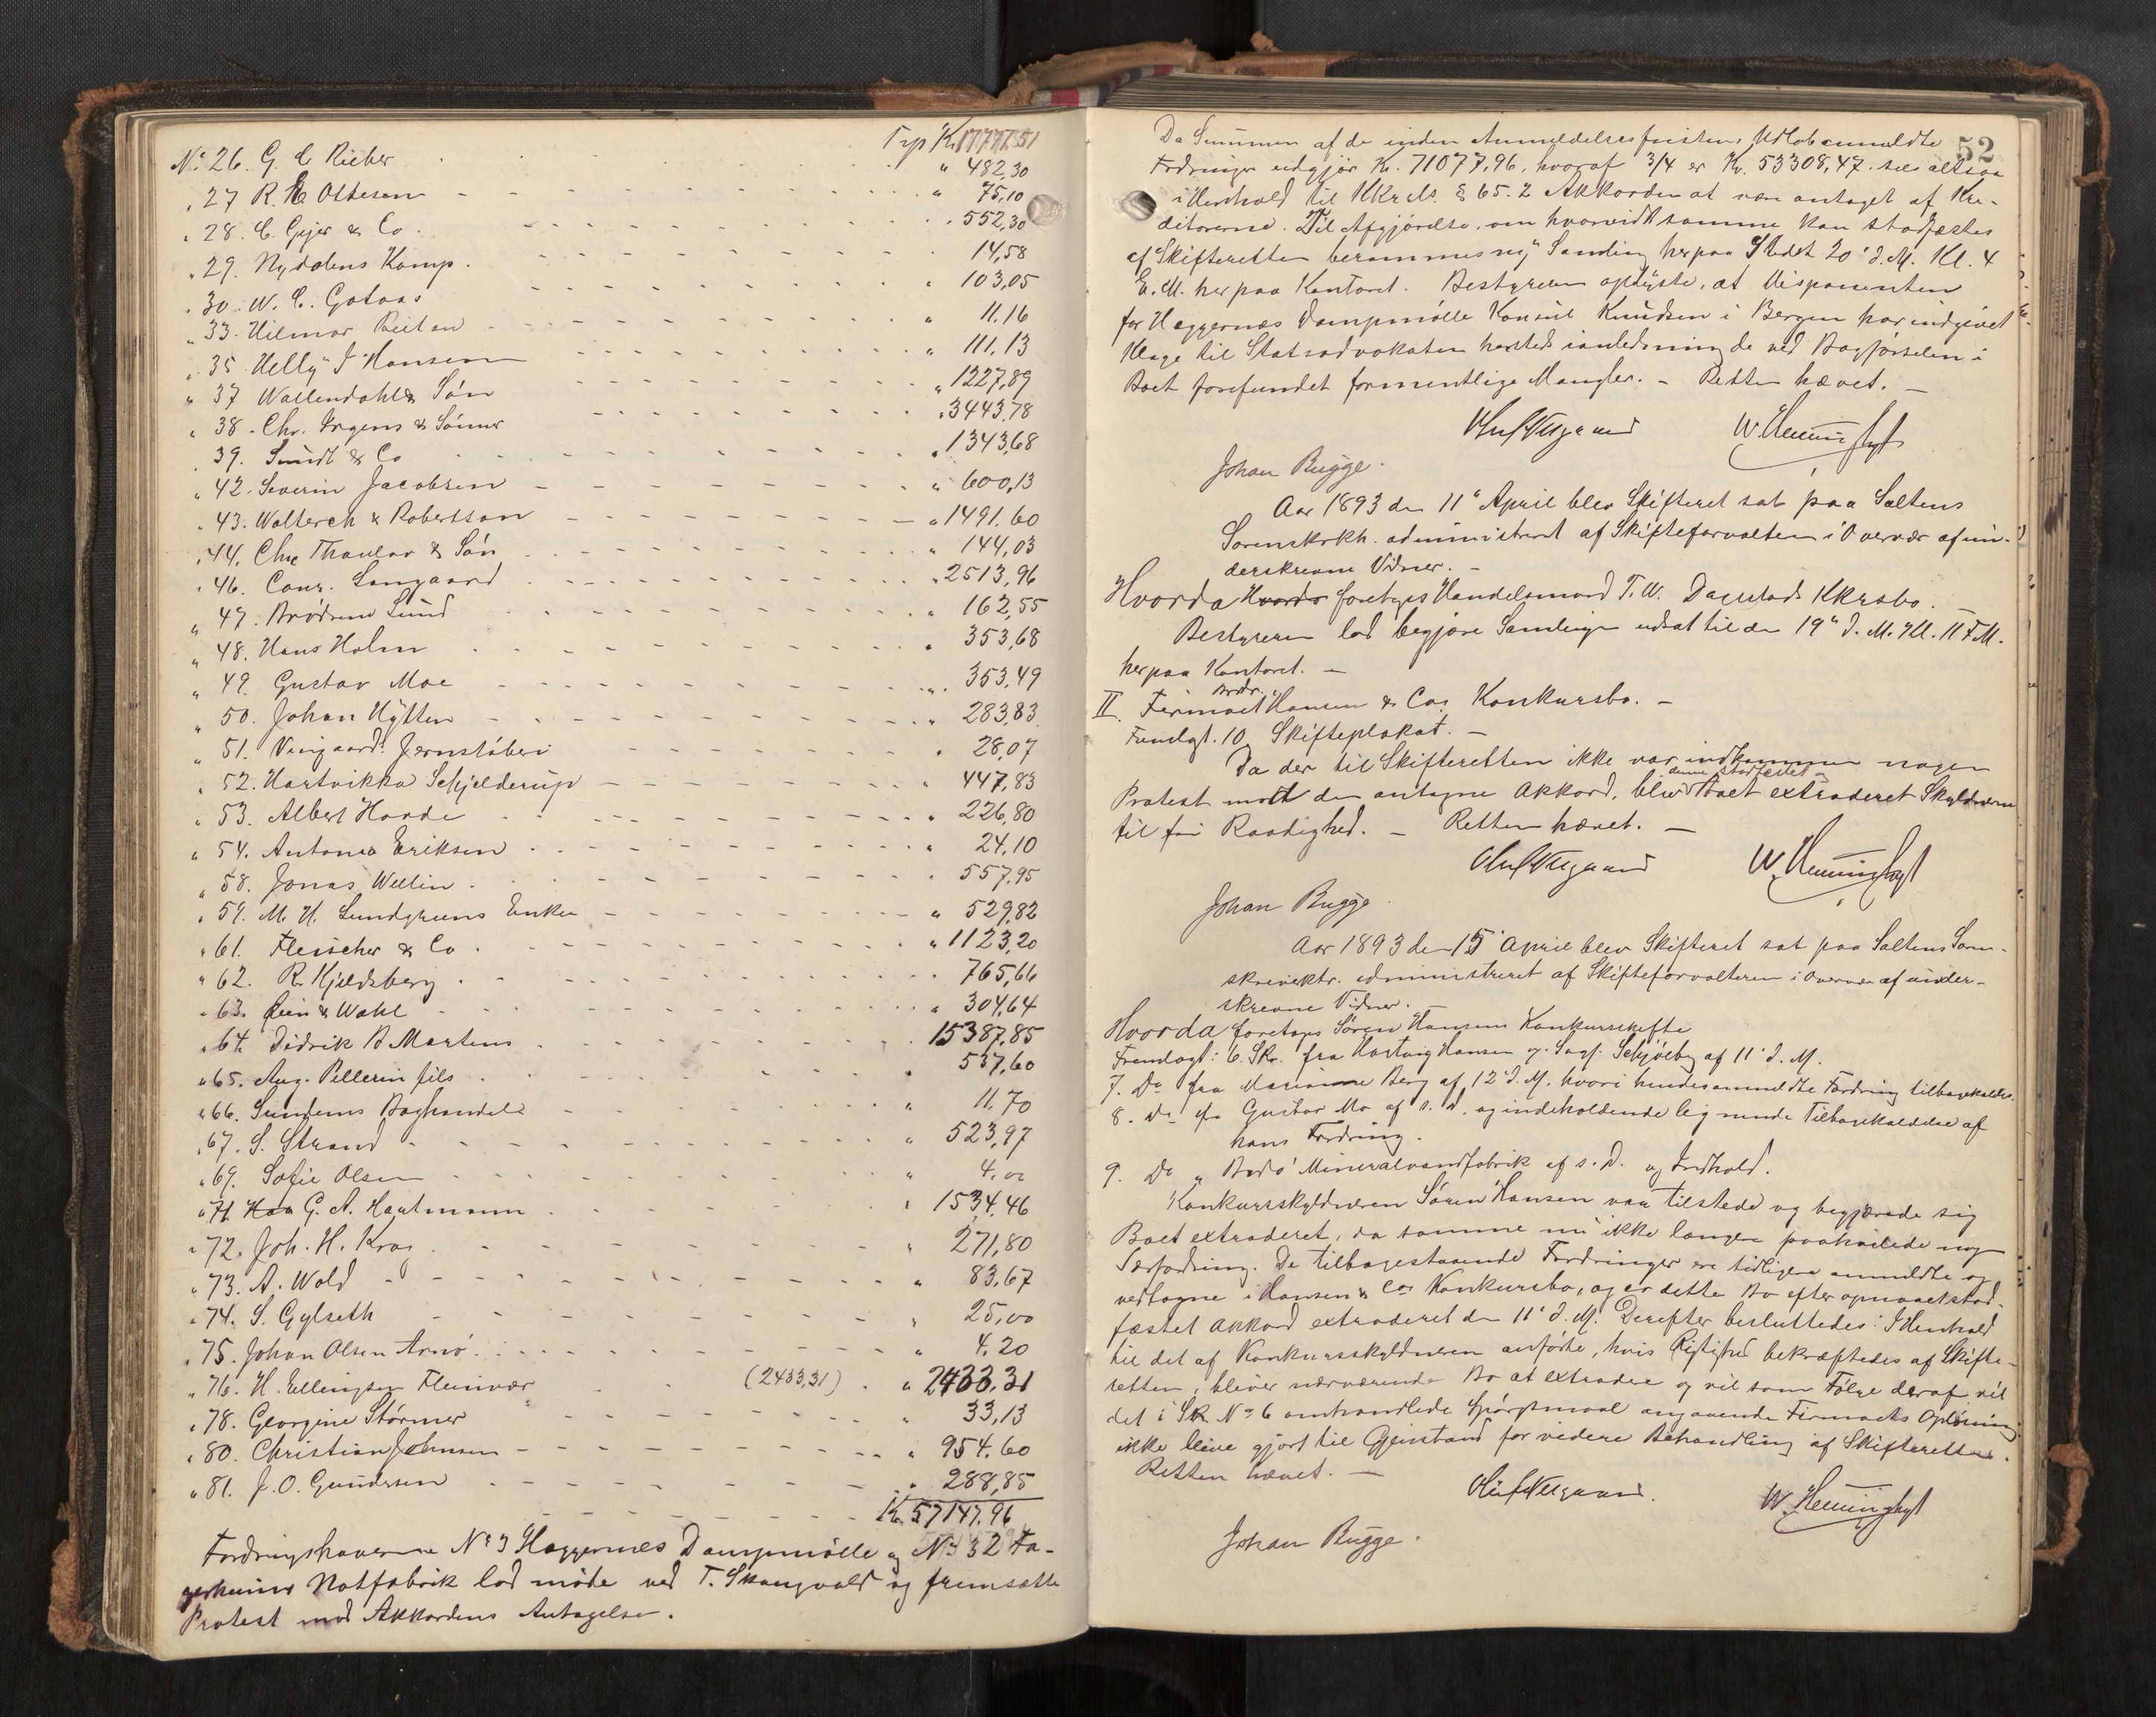 Trp Kr 17777.51
No 26. G. C Rieber " 482,30
" 27 R. E Ottesen " 75,10
" 28. C. Geijer & Co. " 552,30
" 29. Nydalens Komp. 14,58
" 30. W. C. Gotaas " 103,05
" 33. Hilmar Reitan " 11.16
" 35. Helly J Hansen " 111.13
" 37 Wallendahl & Søn " 1227,89
" 38. Chr. Irgens & Sønner " 3443,78
" 39. Sundt & Co " 1343,68
" 42. Severin Jacobsen " 600,13
" 43. Walterch & Robertson " 1491.60
" 44. Chr Thaulow & Søn " 144,03
" 46. Conr. Langaard " 2513,96
" 47. Brødrene Sund " 162,55
" 48. Hans Holm " 353,68
" 49. Gustav Moe " 353,49
" 50. Johan Hÿtten " 283,83
" 51. Viingaards Jernstøberi " 28,07
" 52. Hartvikka Schjelderup " 447,83
" 53. Albert Horde " 226,80
" 54. Antona Eriksen " 24.10
" 58. Jonas Wellin " 557,95
" 59. M. H. Lundgreens Enke " 529,82
" 61. Fleischer & Co " 1123,20
" 62. R. Kjeldsberg 765,66
" 63. Rein & Wahl " 304,64
" 64. Didrik B Martens 15387,85
" 65. Aug. Pellerin fils " 537,60
" 66. Sundems Boghandel " 11,70
" 67. S. Strand " 523,97
" 69. Sofie Olsen " 4,00
" 71. G. A. Hartmann " 1534,46
" 72. Joh. H. Krog " 271,80
" 73. A. Wold " 83,67
" 74. S. Gylseth " 25,00
" 75. Johan Olsen Arnø " 4.20
" 76. H. Ellingsen Fleinvær (2433,31) " 2433.31
" 78. Georgine Størmer " 33,13
" 80. Christian Johnsen " 954.60
" 81. J. O. Gundersen " 288,85
Kr. 57147.96
Fordringshaverne No 3 Heggernes Dampmølle og No 32 Fa-
gerheims Notfabrik lod møde ved T. Skangvald og fremsætte
Protest mod Akkordens Antagelse.
52
Da Summen af de inden Anmeldelsesfristens Udløb anmeldte
Fordringer udgjør Kr. 71077,96, hvoraf 3/4 er Kr. 53308,47. sees altsaa
i Henhold til KKrsls. § 65. 2 Akkorden at være antaget af Kre-
ditorerne. Til Afgjørelse, om hvorvidt samme kan stadfæstes
af Skifteretten berammes ny Samling herpaa Stedet 20' d. M. Kl. 4
E. M. herpaa Kontoret. Bestyreren oplyste, at Disponenten
for Heggernæs Dampmølle Konsul Knudsen i Bergen har indgivet
Klage til Statsadvokaten hersteds i anledning de ved Bogførselen i
Boet forefundet formentlige Mangler. - Retten hævet. -
W. Henning
Johan Bugge.
Aar 1893 den 11' April blev Skifteret sat paa Saltens
Sorenskrkh. administreret af Skifteforvalteren i Overvær af un-
derskrevne Vidner. -
Hvorda Hvorda foretoges Handelsmand T. W. Dagestads KKrsbo.
Bestyreren lod begjøre Samlingen udsat til den 19' d. M. Kl. 11 F.M.
herpaa Kontoret. -
II. Firmaet Brdr. Hansen & Cos Konkursbo. -
Fremlagt. 10 Skifteplakat. -
Da der til Skifteretten ikke var indkommen nogen
denne stadfæstet og
Protest mod den antagne Akkord, blev Boet extraderet Skyldneren
til fri Raadighed. - Retten hævet. -
W. Henning
Johan Bugge
Aar 1893 den 15' April blev Skifteret sat paa Saltens Soren-
skriverktr. administreret af Skifteforvalteren i Overvær af under-
skrevne Vidner. -
Hvorda foretoges Søren Hansens Konkursskifte
Fremlagt: 6. Skr. fra Hartvig Hansen v. Sagf. Schjøeby af 11' d. M.
7. Do fra Marianne Berg af 12' d. M. hvori hendes anmeldte Fordring tilbagekaldes.
8. Do fra Gustav Mo af s. D. og indeholdende lignende Tilbagekaldelse af
hans Fordring.
9. Do " Bodø Mineralvandfabrik af s. D. og Indhold.
Konkursskyldneren Søren Hansen var tilstede og begjærede sig
Boet extraderet, da samme nu ikke længer paahvilede nogen
Særfordring. De tilbagestaaende Fordringer ere tidligere anmeldte og
vedtagne i Hansen & Cos Konkursbo, og er dette Bo efter opnaaet stad-
fæstet Akkord extraderet den 11' d. M. Derefter besluttedes: I Henhold
til det af Konkursskyldneren anførte, hvis Rigtighed bekræftedes af Skifte-
retten, bliver nærværende Bo at extradere og vil som Følge deraf vil
det i Skr. No 6 omhandlede Spørgsmaal angaaende Firmaets Opløsning
ikke blive gjort til Gjenstand for videre Behandling af Skifteretten.
Retten hævet. -
W. Henning
Johan Bugge.